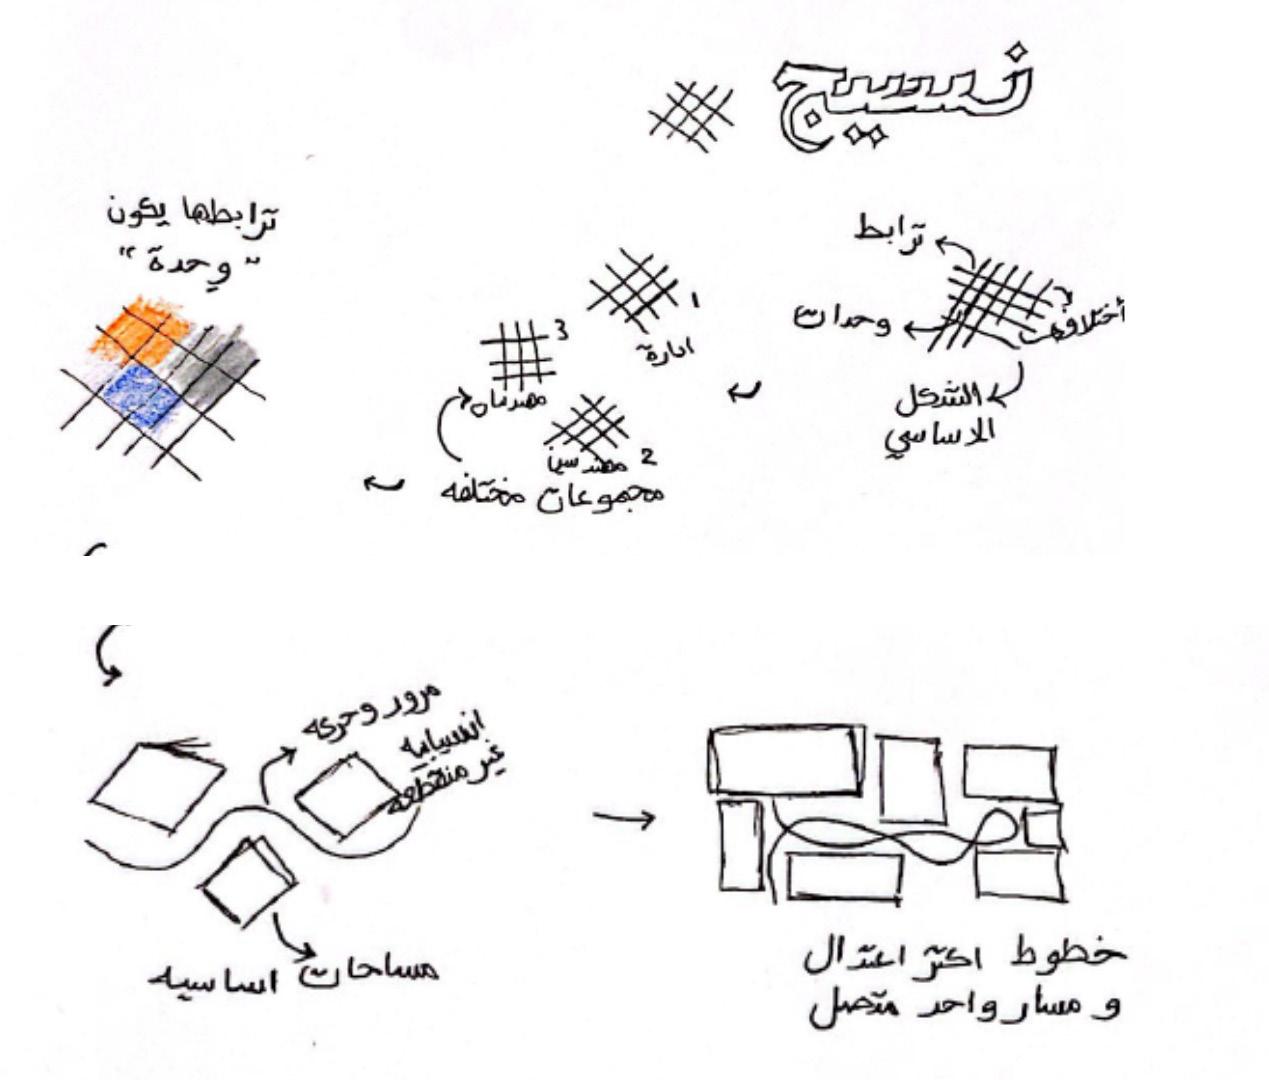 نسيج
ترابط
أختلاف
وحدات
الشكل
الاساسي
1
ادارة
3
مهندسات
2 مهندسين
مجموعات مختلفه
ترابطها يكون
"وحدة"
مرور وحركه
انسيابيه
غير منقطعه
مساحات اساسيه
خطوط اكثر اعتدال
و مسار واحد متصل